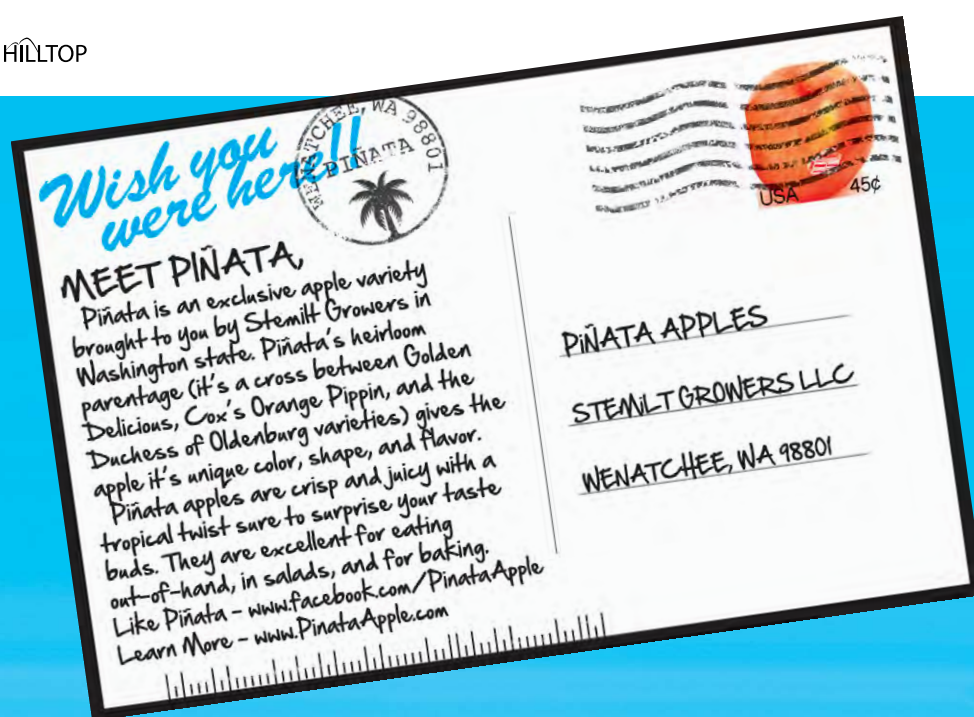 HILLTOP
Wish you
were here!!
WENATCHEE, WA 98801
PIÑATA
USA
45¢
MEET PIÑATA,
Piñata is an exclusive apple variety
brought to you by Stemilt Growers in
Washington state. Piñata's heirloom
parentage (it's a cross between Golden
Delicious, Cox's Orange Pippin, and the
Duchess of Oldenburg varieties) gives the
apple it's unique color, shape, and flavor.
Piñata apples are crisp and juicy with a
tropical twist sure to surprise your taste
buds. They are excellent for eating
out-of-hand, in salads, and for baking.
Like Piñata - www.facebook.com/PinataApple
Learn More - www.PinataApple.com
PIÑATA APPLES
STEMILT GROWERS LLC
WENATCHEE, WA 98801